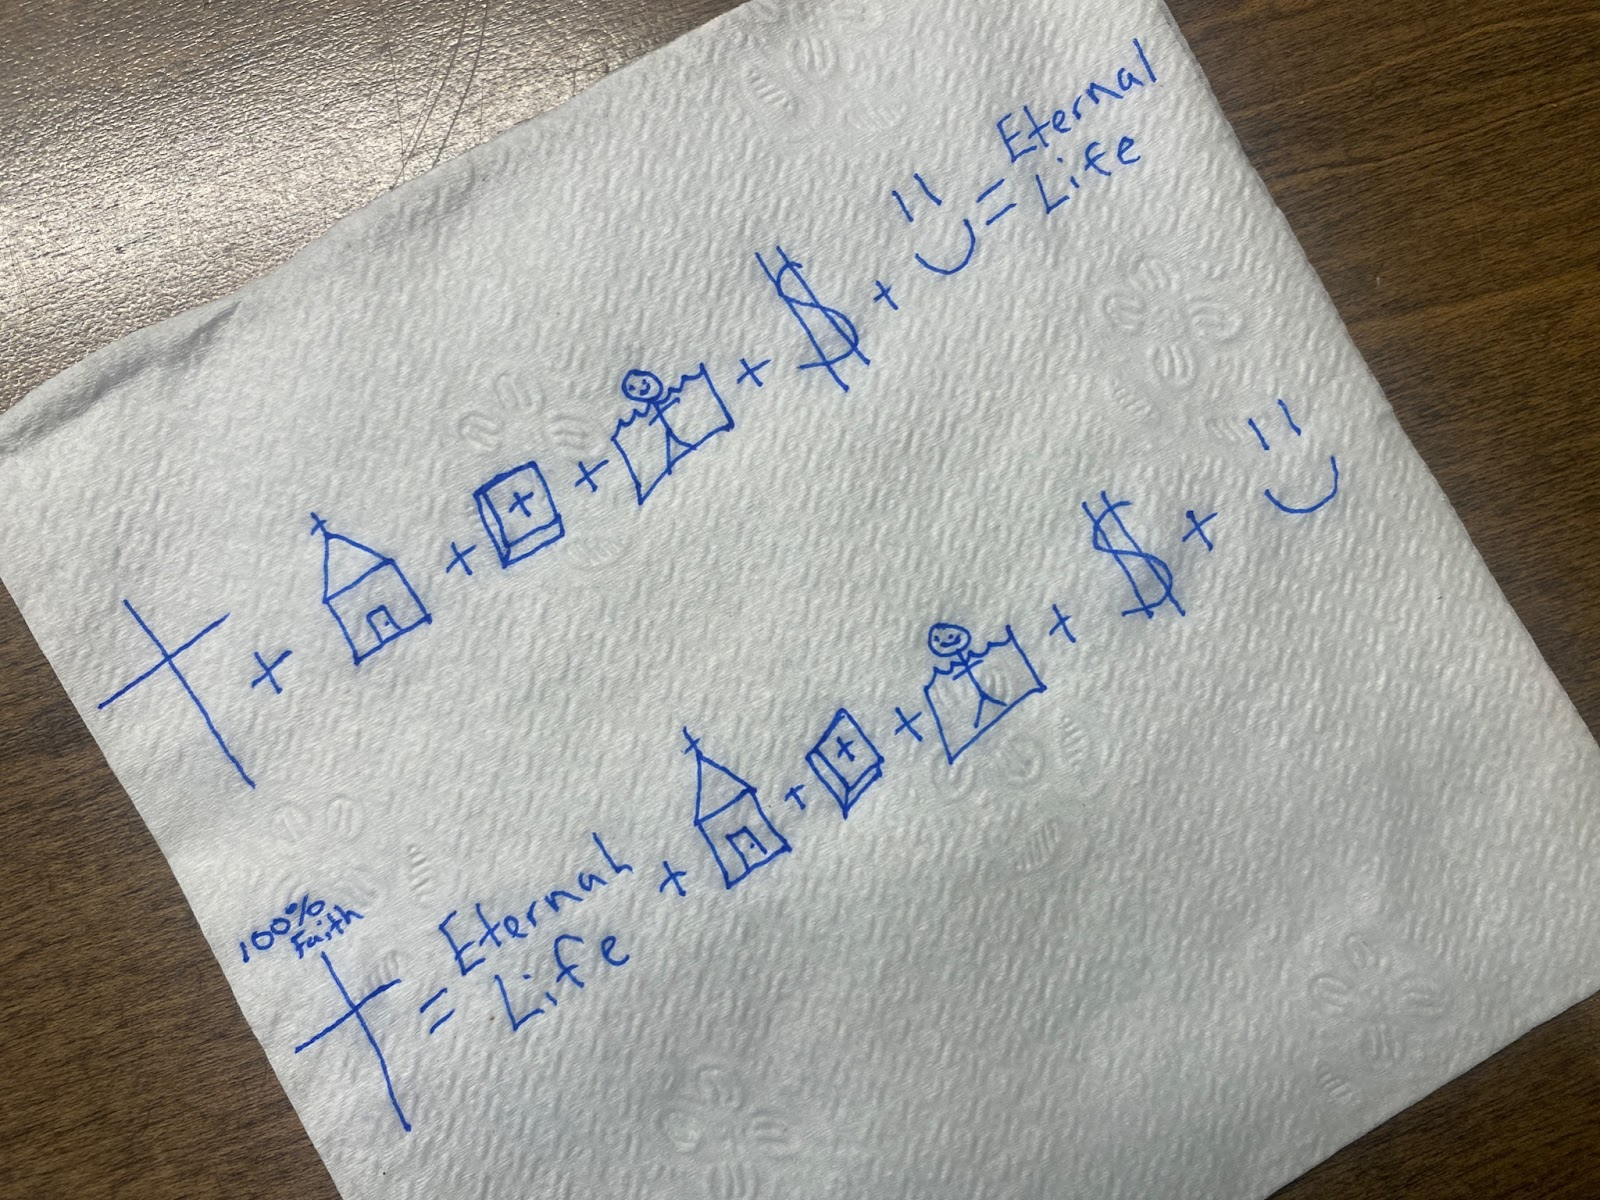 + + + + $ + = Eternal
Life
100%
Faith
= Eternal + + + + $ +
Life